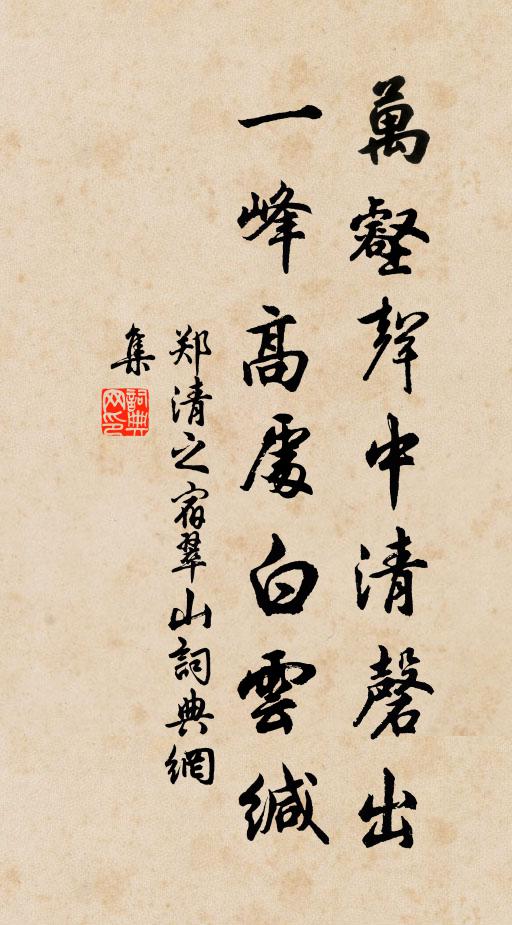 萬壑聲中清磬出
一峰高處白雲緘
郑清之宿翠山詞典網
集
詞典网印